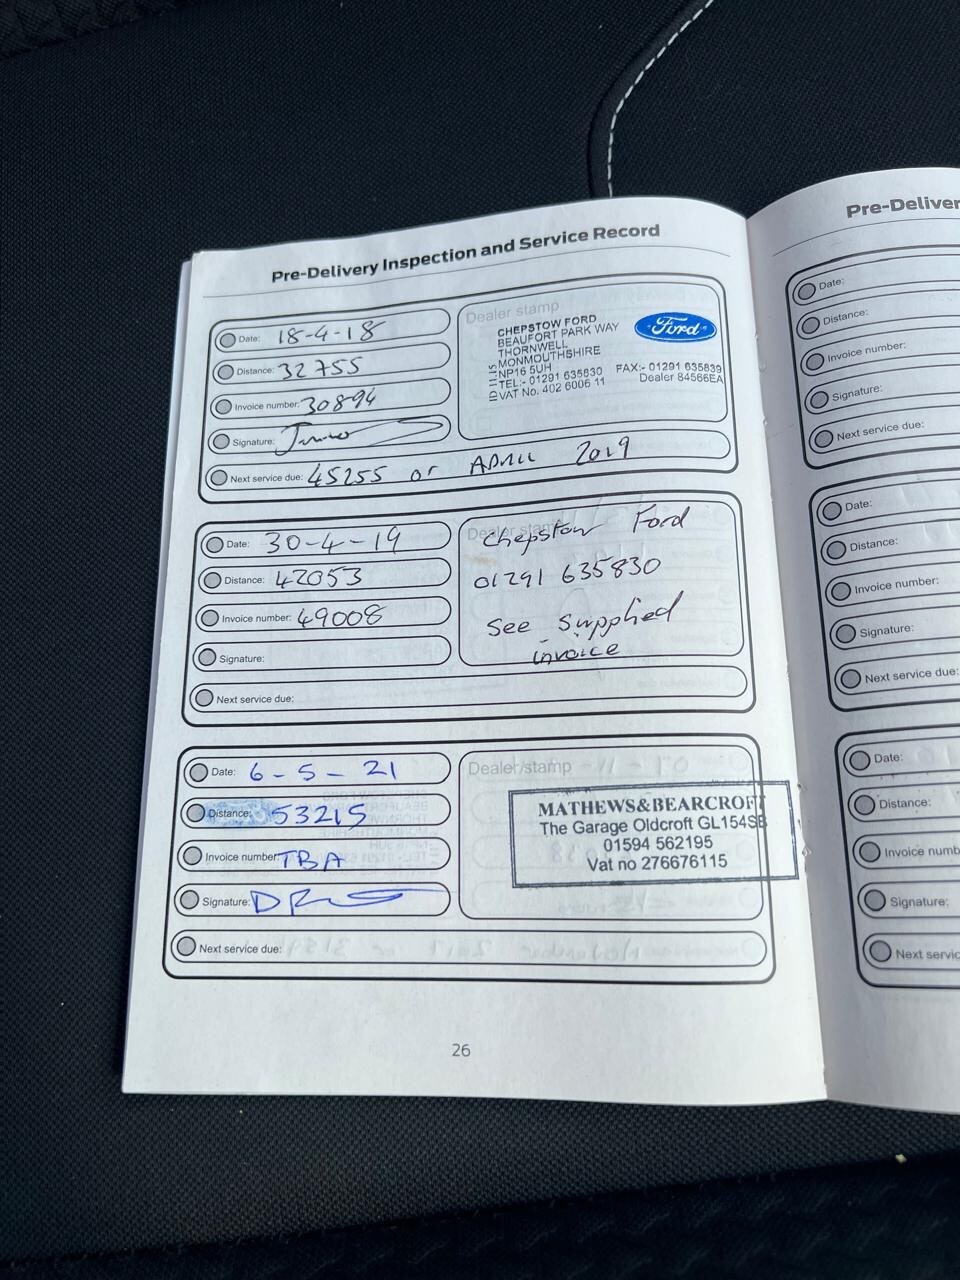 Pre-Delivery Inspection and Service Record
Date: 18-4-18
Distance: 32755
Invoice number: 30894
Signature:
Next service due: 45255 or APRIL 2019
Dealer stamp
CHEPSTOW FORD
BEAUFORT PARK WAY
THORNWELL
MONMOUTHSHIRE
NP16 5UH
TEL:- 01291 635830 FAX:- 01291 635839
VAT No. 402 6006 11 Dealer 84566EA
Ford
Date: 30-4-19
Distance: 42053
Invoice number: 49008
Signature:
Next service due:
Dealer stamp
Chepstow Ford
01291 635830
See supplied
invoice
Date: 6-5-21
Distance: 53215
Invoice number: TBA
Signature:
Next service due:
Dealer stamp
MATHEWS&BEARCROFT
The Garage Oldcroft GL154SE
01594 562195
Vat no 276676115
26
Pre-Deliver
Date:
Distance:
Invoice number:
Signature:
Next service due:
Date:
Distance:
Invoice number:
Signature:
Next service due:
Date:
Distance:
Invoice numb
Signature:
Next servic